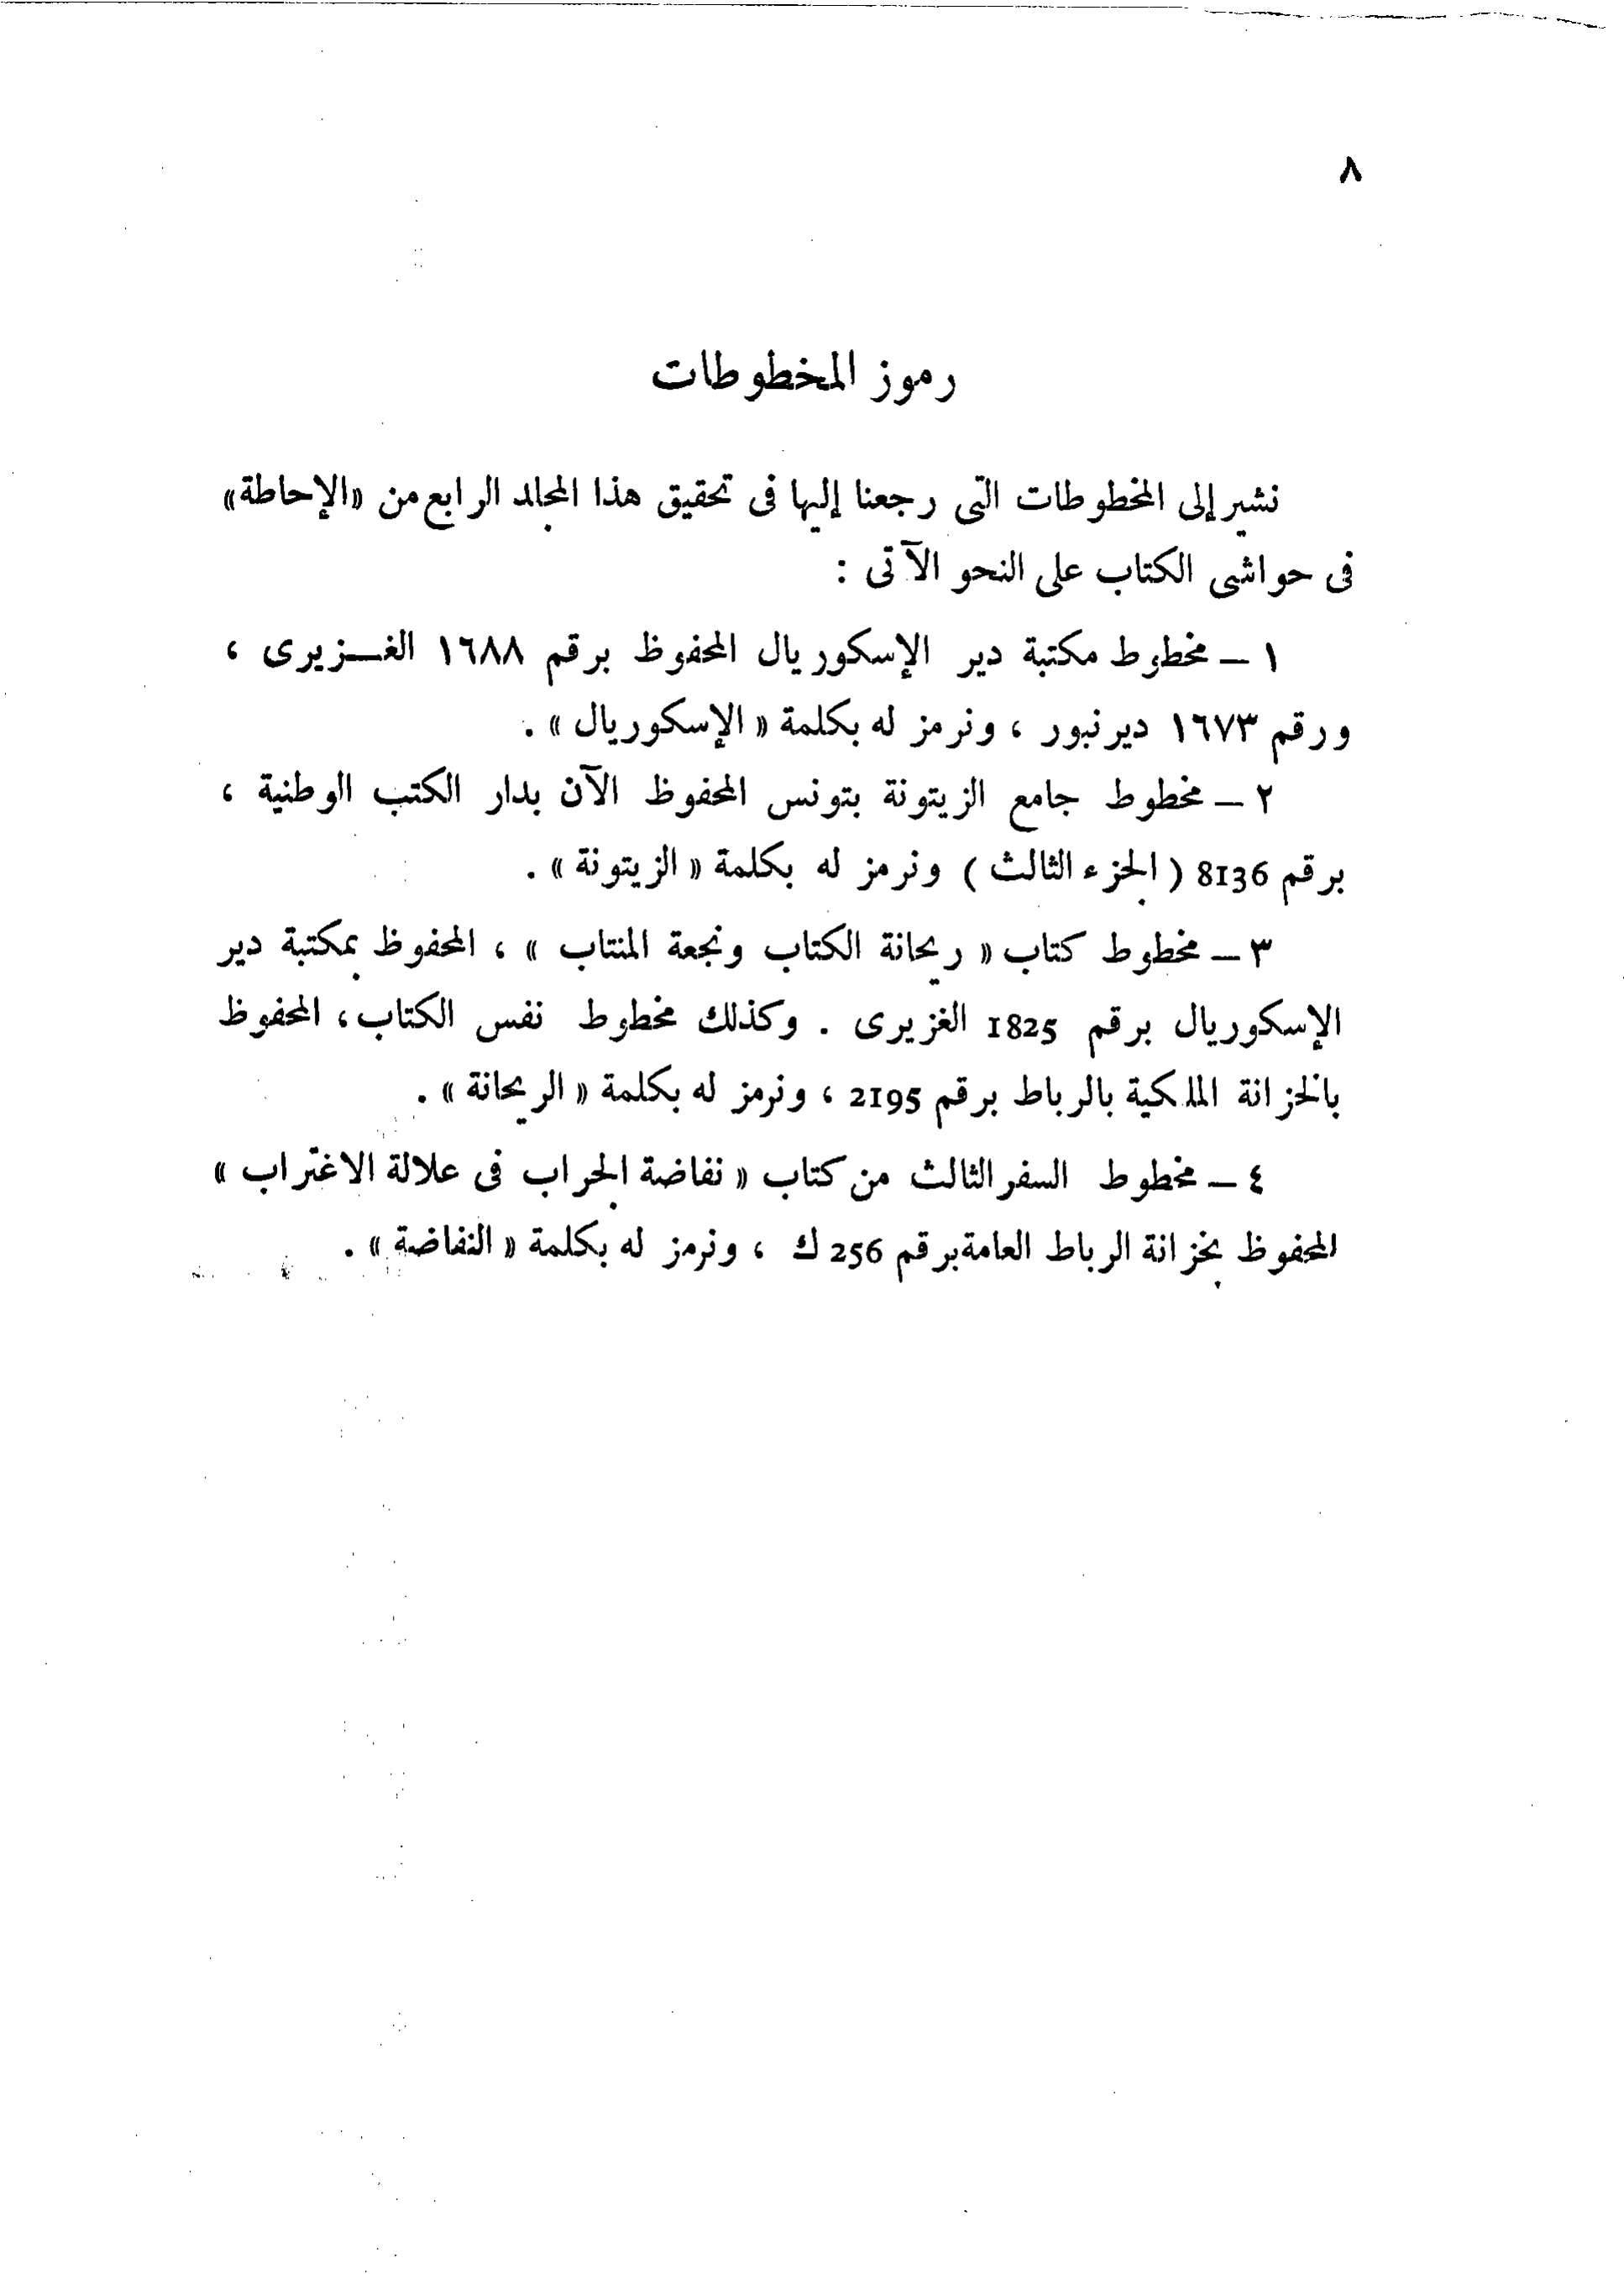 ٨
رموز المخطوطات
نشير إلى المخطوطات التى رجعنا إليها فى تحقيق هذا المجلد الرابع من «الإحاطة»
فى حواشى الكتاب على النحو الآتى :
١ – مخطوط مكتبة دير الإسكوريال المحفوظ برقم ١٦٨٨ الغـزيرى ،
ورقم ١٦٧٣ ديرنبور ، ونرمز له بكلمة « الإسكوريال » .
٢ – مخطوط جامع الزيتونة بتونس المحفوظ الآن بدار الكتب الوطنية ،
برقم 8136 ( الجزء الثالث ) ونرمز له بكلمة « الزيتونة » .
٣ – مخطوط كتاب « ريحانة الكتاب ونجعة المنتاب » ، المحفوظ بمكتبة دير
الإسكوريال برقم 1825 الغزيرى . وكذلك مخطوط نفس الكتاب ، المحفوظ
بالخزانة الملكية بالرباط برقم 2195 ، ونرمز له بكلمة « الريحانة » .
٤ – مخطوط السفر الثالث من كتاب « نفاضة الجراب فى علالة الاغتراب »
المحفوظ بخزانة الرباط العامة برقم 256 ك ، ونرمز له بكلمة « النفاضة » .